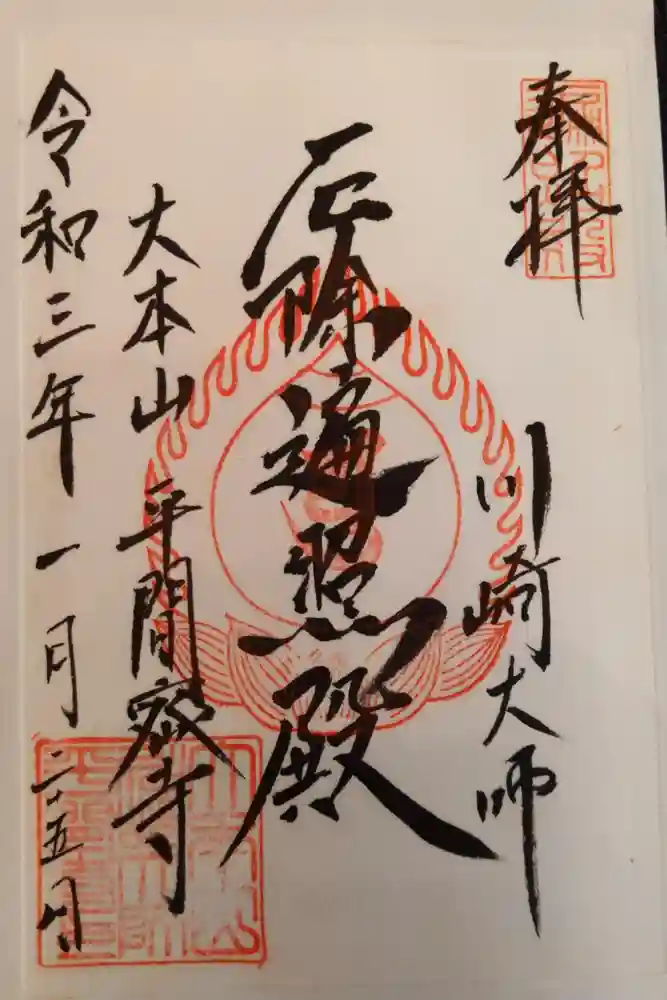 奉拝
川崎大師
厄除遍照殿
大本山
平間寺
令和三年一月二十五日